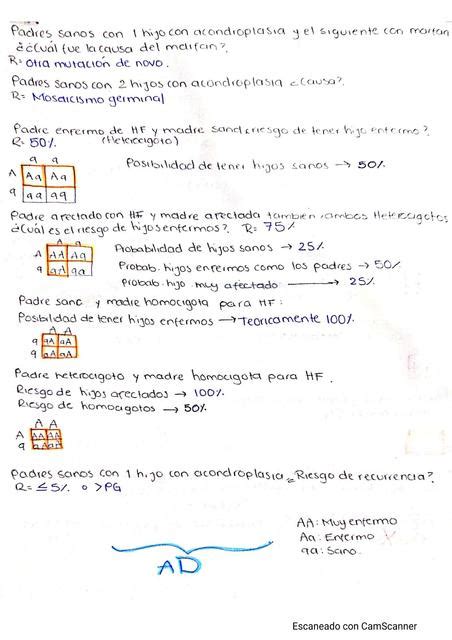 Padres sanos con 1 hijo con acondroplasia y el siguiente con marfan
¿Cuál fue la causa del marfan?.
R= Otra mutación de novo.
Padres sanos con 2 hijos con acondroplasia ¿Causa?.
R= Mosaicismo germinal
Padre enfermo de HF y madre sana ¿riesgo de tener hijo enfermo?
R= 50% (Heterocigoto)
a a
A Aa Aa
a aa aa
Posibilidad de tener hijos sanos → 50%
Padre afectado con HF y madre afectada también (ambos Heterocigotos
¿Cuál es el riesgo de hijos enfermos?. R= 75%
A a
A AA Aa
a aA aa
Probabilidad de hijos sanos → 25%
Probab. hijos enfermos como los padres → 50%
Probab. hijo muy afectado → 25%
Padre sano y madre homocigota para HF:
Posibilidad de tener hijos enfermos → Teoricamente 100%.
A A
a aA aA
a aA aA
Padre heterocigoto y madre homocigota para HF.
Riesgo de hijos afectados → 100%
Riesgo de homocigotos → 50%
A A
A AA AA
a aA aA
Padres sanos con 1 hijo con acondroplasia ¿Riesgo de recurrencia?
R= ≤5% o >PG
AA: Muy enfermo
Aa: Enfermo
aa: Sano.
AD
Escaneado con CamScanner